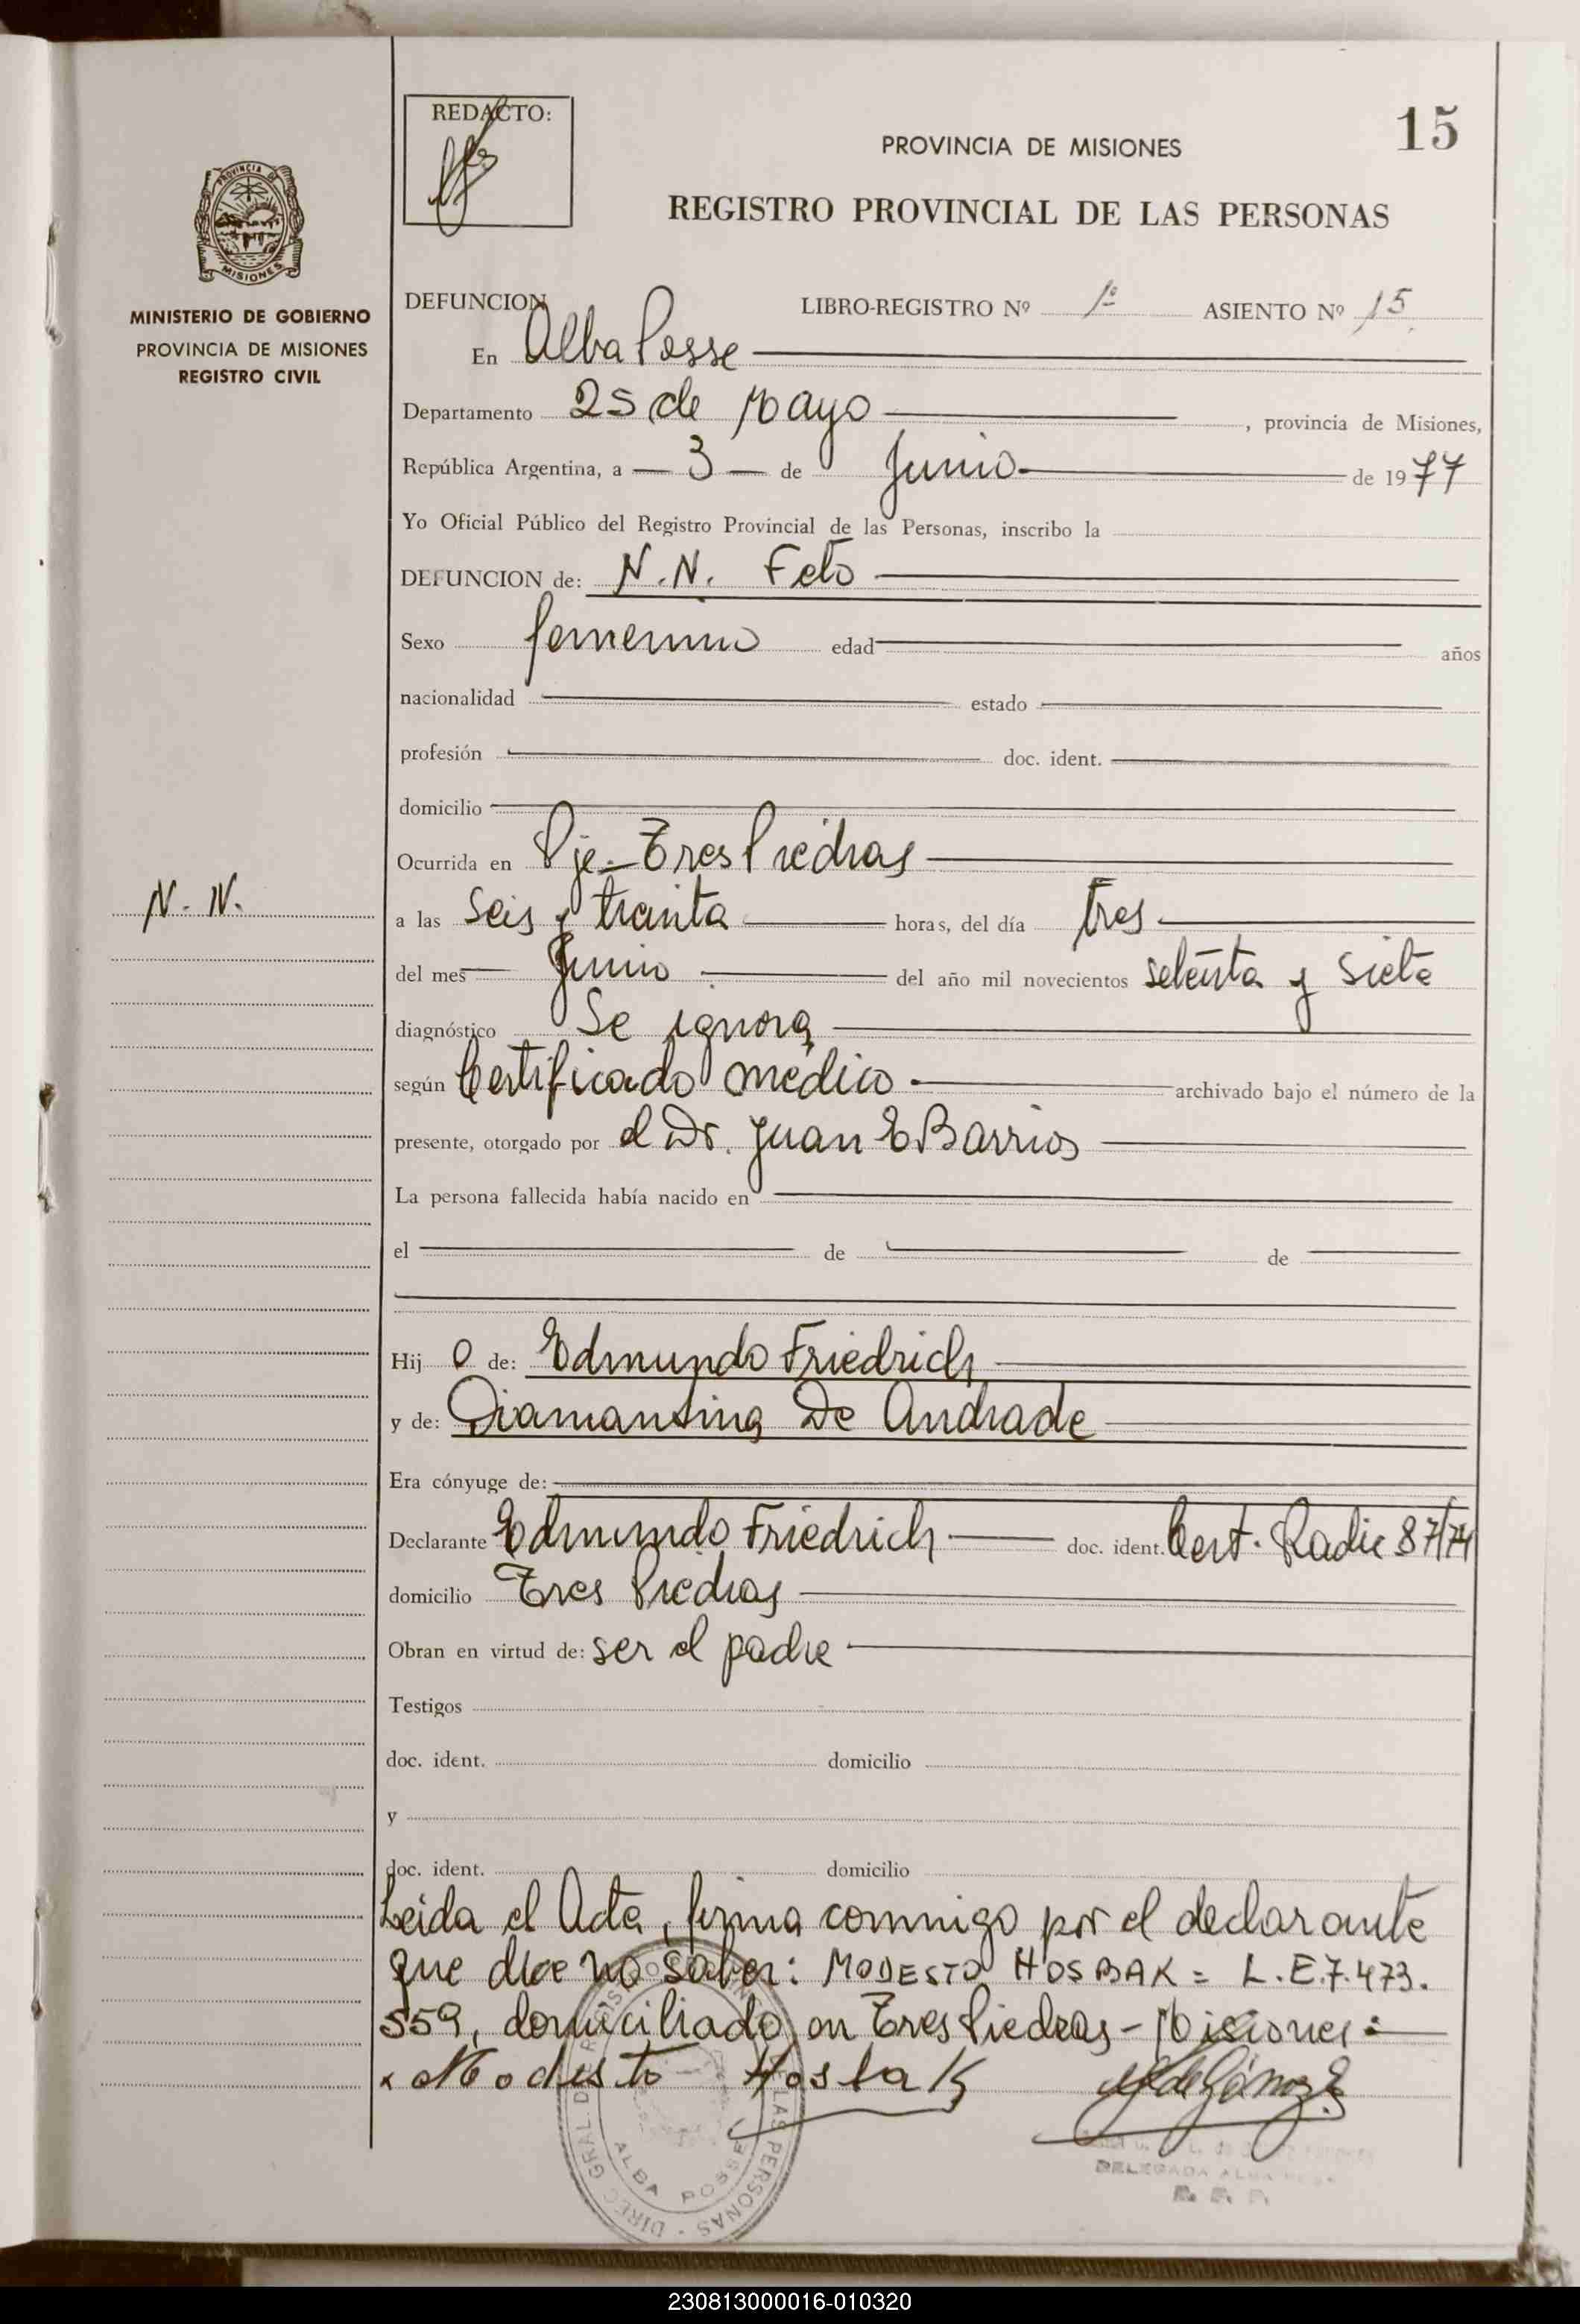 REDACTO:
15
PROVINCIA DE MISIONES
REGISTRO PROVINCIAL DE LAS PERSONAS
PROVINCIA DE
MISIONES
MINISTERIO DE GOBIERNO
PROVINCIA DE MISIONES
REGISTRO CIVIL
DEFUNCION LIBRO-REGISTRO Nº 1º ASIENTO Nº 15
En Alba Posse
Departamento 25 de Mayo, provincia de Misiones,
República Argentina, a 3 de Junio de 1977
Yo Oficial Público del Registro Provincial de las Personas, inscribo la
DEFUNCION de: N.N. Feto
Sexo femenino edad años
nacionalidad estado
profesión doc. ident.
domicilio
Ocurrida en Pje- Tres Piedras
N. N.
a las seis y treinta horas, del día tres
del mes Junio del año mil novecientos setenta y siete
diagnóstico Se ignora
según Certificado médico archivado bajo el número de la
presente, otorgado por el Dr. Juan E Barrios
La persona fallecida había nacido en
el de de
Hij o de: Edmundo Friedrich
y de: Diamantina De Andrade
Era cónyuge de:
Declarante Edmundo Friedrich doc. ident. Cert. Radic 87/74
domicilio Tres Piedras
Obran en virtud de: ser el padre
Testigos
doc. ident. domicilio
y
doc. ident. domicilio
Leida el Acta, firma conmigo por el declarante
que dice no saber: MODESTO HOSBAK = L.E.7.473.
559, domiciliado en Tres Piedras - Misiones =
x Modesto Hosbak
ALBA POSSE
LAS PERSONAS - DIREC. GRAL. DE REGISTRO
DELEGADA ALBA POSSE
R. P. P.
230813000016-010320